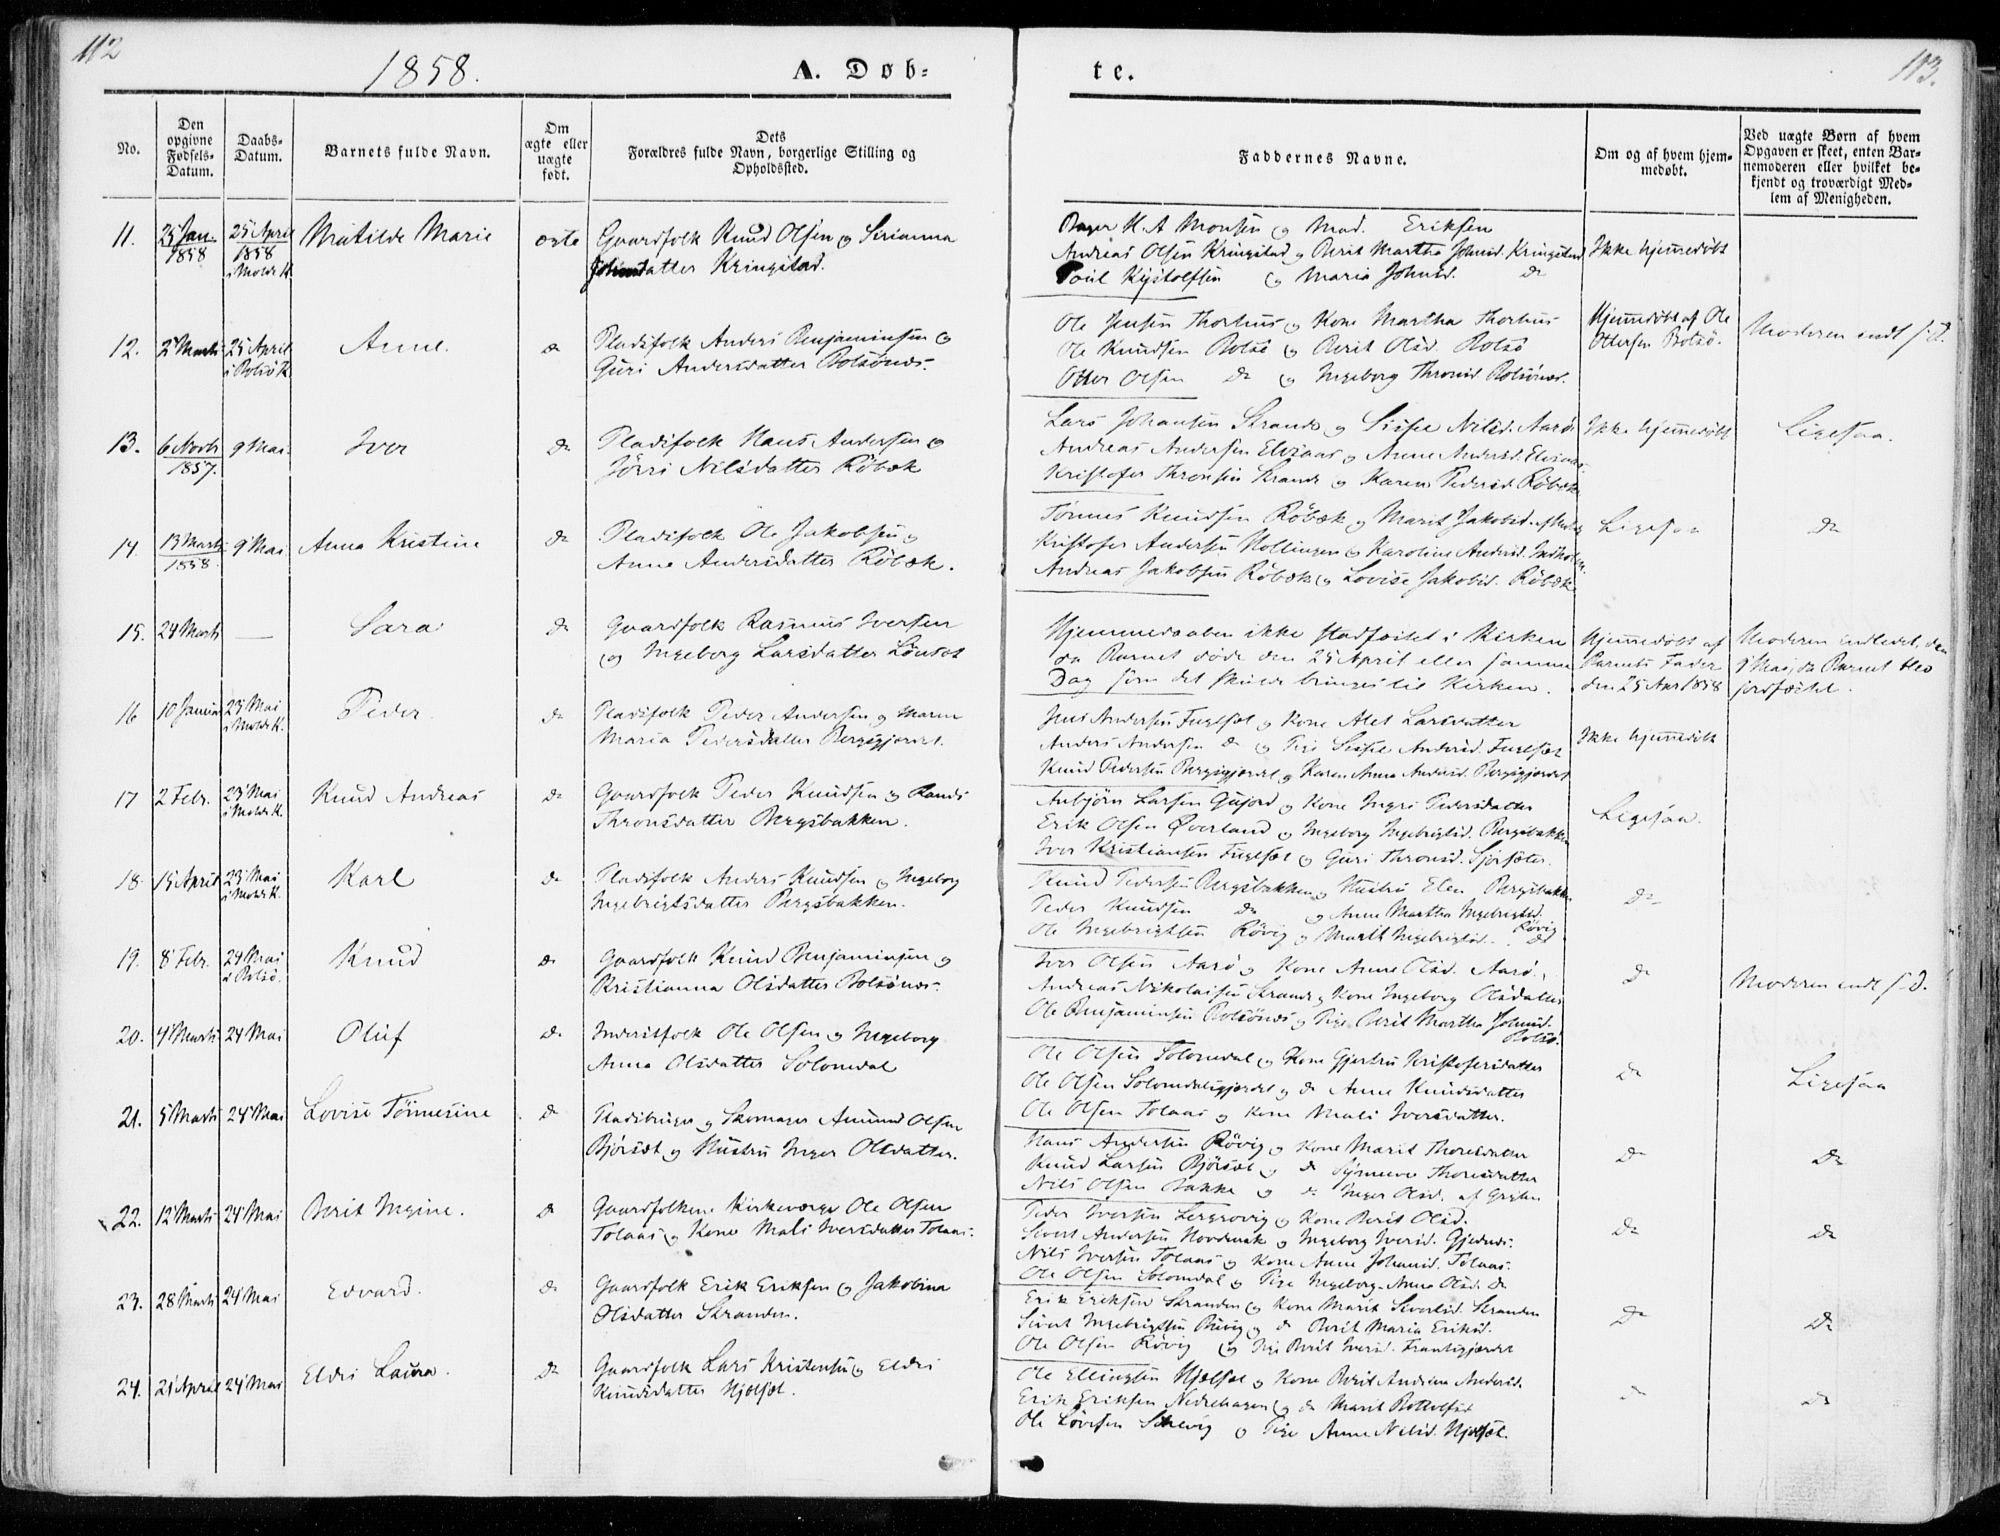 112
1858.
A. Døb-
te.
113.
No.
Den opgivne Fødsels-Datum.
Daabs-Datum.
Barnets fulde Navn.
Om ægte eller uægte født.
Dets Forældres fulde Navn, borgerlige Stilling og Opholdssted.
Faddernes Navne.
Om og af hvem hjem-medøbt.
Ved uægte Børn af hvem Opgaven er skeet, enten Bar-nemoderen eller hvilket be-kjendt og troværdigt Med-lem af Menigheden.
11. 25 Jan. 1858 25 April 1858 i Molde K. Matilde Marie ægte
Gaardfolk Knud Olsen og Serianna
Johnsdatter Kringstad.
Bager H. A Monsen og Mad. Eriksen
Andreas Olsen Kringstad og Berit Martha Johnsd. Kringstad
Maria Johnsd. do
Ikke hjemmedøbt
12. 2 Marts 25 April i Bolsö K. Anne. do
Pladsfolk Anders Benjaminsen og
Guri Andersdatter Bolsönæs.
Ole Jensen Thorhus og Kone Martha Thorhus
Ole Knudsen Bolsö og Berit Olsd. Bolsö
Otter Olsen do og Ingeborg Thronsd. Bolsönæs.
Hjemmedöbt af Ole
Ottersen Bolsö.
Moderen indl. s. D.
13. 6 Novb 1857. 9 Mai. Iver do
Pladsfolk Hans Andersen og
Jörri Nilsdatter Röbæk
Lars Johansen Strande og Sissel Nilsd. Aarö
Andreas Andersen Elvsaas og Anne Andersd. Elvsaas.
Kristofer Thronsen Strande og Karen Pedersd. Röbæk
Ikke hjemmedöbt
Ligesaa.
14. 13 Marts 1858. 9 Mai Anna Kristine do
Pladsfolk Ole Jakobsen og
Anne Andersdatter Röbæk.
Tönnes Knudsen Röbæk og Marit Jakobsd.
Kristofer Andersen Hollingen og Karoline Andersd.
Andreas Jakobsen Röbæk og Lovise Jakobsd. Röbæk
Ligesaa
do
15. 24 Marts — Sara do
Gaardfolk Rasmus Iversen
og Ingeborg Larsdatter Lönset
Hjemmedaaben ikke stadfæstet i Kirken
da Barnet døde den 25 April eller samme
Dag som det skulde bringes til Kirken.
Hjemmedöbt af
Barnets Fader
den 25 Apr 1858
Moderen indledet, den
9 Mai, da Barnet blev
jordfæstet.
16 10 Januar 23 Mai i Molde K. Peder. do
Pladsfolk Peder Andersen og Maren
Maria Pedersdatter Bergsgjerdet.
Jens Andersen Fuglset og Kone Alet Larsdatter
Anders Andersen do og Pige Sissel Andersd. Fuglset
Knud Pedersen Bergsgjerdet og Karen Anna Andersd. Bergsgjerdet
Ikke hjemmedöbt
17 2 Febr. 23 Mai i Molde K. Knud Andreas do
Gaardfolk Peder Knudsen og Randi
Thronsdatter Bergsbakken.
Anbjörn Larsen Gujord og Kone Ingri Pedersdatter
Erik Olsen Överland og Ingeborg Ingebrigtsd. Bergsbakken
Iver Kristiansen Fuglset og Guri Thronsd.
Ligesaa.
18. 15 April 23 Mai i Molde K. Karl do
Pladsfolk Anders Knudsen og Ingeborg
Ingebrigtsdatter Bergsbakken.
Knud Pedersen Bergsbakken og Hustru Elen Bergsbakken
Peder Knudsen do og Anne Martha Ingebrigtsd.
Ole Ingebrigtsen Rövig og Marit Ingebrigtsd. Rövig
do
19. 8 Febr. 24 Mai i Bolsö. Knud do
Gaardfolk Knud Benjaminsen og
Kristianna Olsdatter Bolsönæs.
Iver Olsen Aarö og Kone Anne Olsd. Aarö.
Andreas Nikolaisen Strande og Kone Ingeborg Olsdatter
Ole Benjaminsen Bolsönæs og Pige Berit Martha Johnsd. Bolsö.
do
Moderen indl s. D.
20. 4 Marts 24 Mai Oluf do
Inderstfolk Ole Olsen og Ingeborg
Anna Olsdatter Solomdal
Ole Olsen Solomdal og Kone Gjertru Kristofersdatter
Ole Olsen Solomdalsgjerdet og do Anne Knudsdatter
Ole Olsen Tolaas og Kone Mali Iversdatter.
do
Ligesaa
21. 5 Marts 24 Mai Lovise Tönnesine do
Pladsbruger og Skomager Amund Olsen
Björset og Hustru Inger Olsdatter.
Hans Andersen Rövig og Kone Marit Thoresdatter
Knud Larsen Björset og do Synneve Thoresdatter
Nils Olsen Bakke og do Inger Olsd.
do
do
22. 12 Marts 24 Mai Berit Ingine. do
Gaardfolkene Kirkeværge Ole Olsen
Tolaas og Kone Mali Iversdatter Tolaas.
Peder Iversen og Kone Berit Olsd.
Sivert Andersen Hovdenak og Ingeborg Iversd.
Nils Iversen Tolaas og Kone Anne Johansd. Tolaas.
Ole Olsen Solomdal og Pige Ingeborg Anna Olsd. do
do
do
23. 28 Marts 24 Mai Edvard. do
Gaardfolk Erik Eriksen og Jakobina
Olsdatter Stranden.
Erik Eriksen Stranden og Kone Marit Sivertsd. Stranden
Sivert Ingebrigtsen og do Berit Maria Eriksd.
Ole Olsen Rövig og Pige Berit Iversd.
do
do
24. 21 April 24 Mai Eldri Laura. do
Gaardfolk Lars Kristensen og Eldri
Knudsdatter Hjelset.
Ole Ellingsen Hjelset og Kone Berit Andrine Andersd.
Erik Eriksen Nedrehagen og do Marit
Ole og Pige Anne Nilsd. Hjelset.
do
do